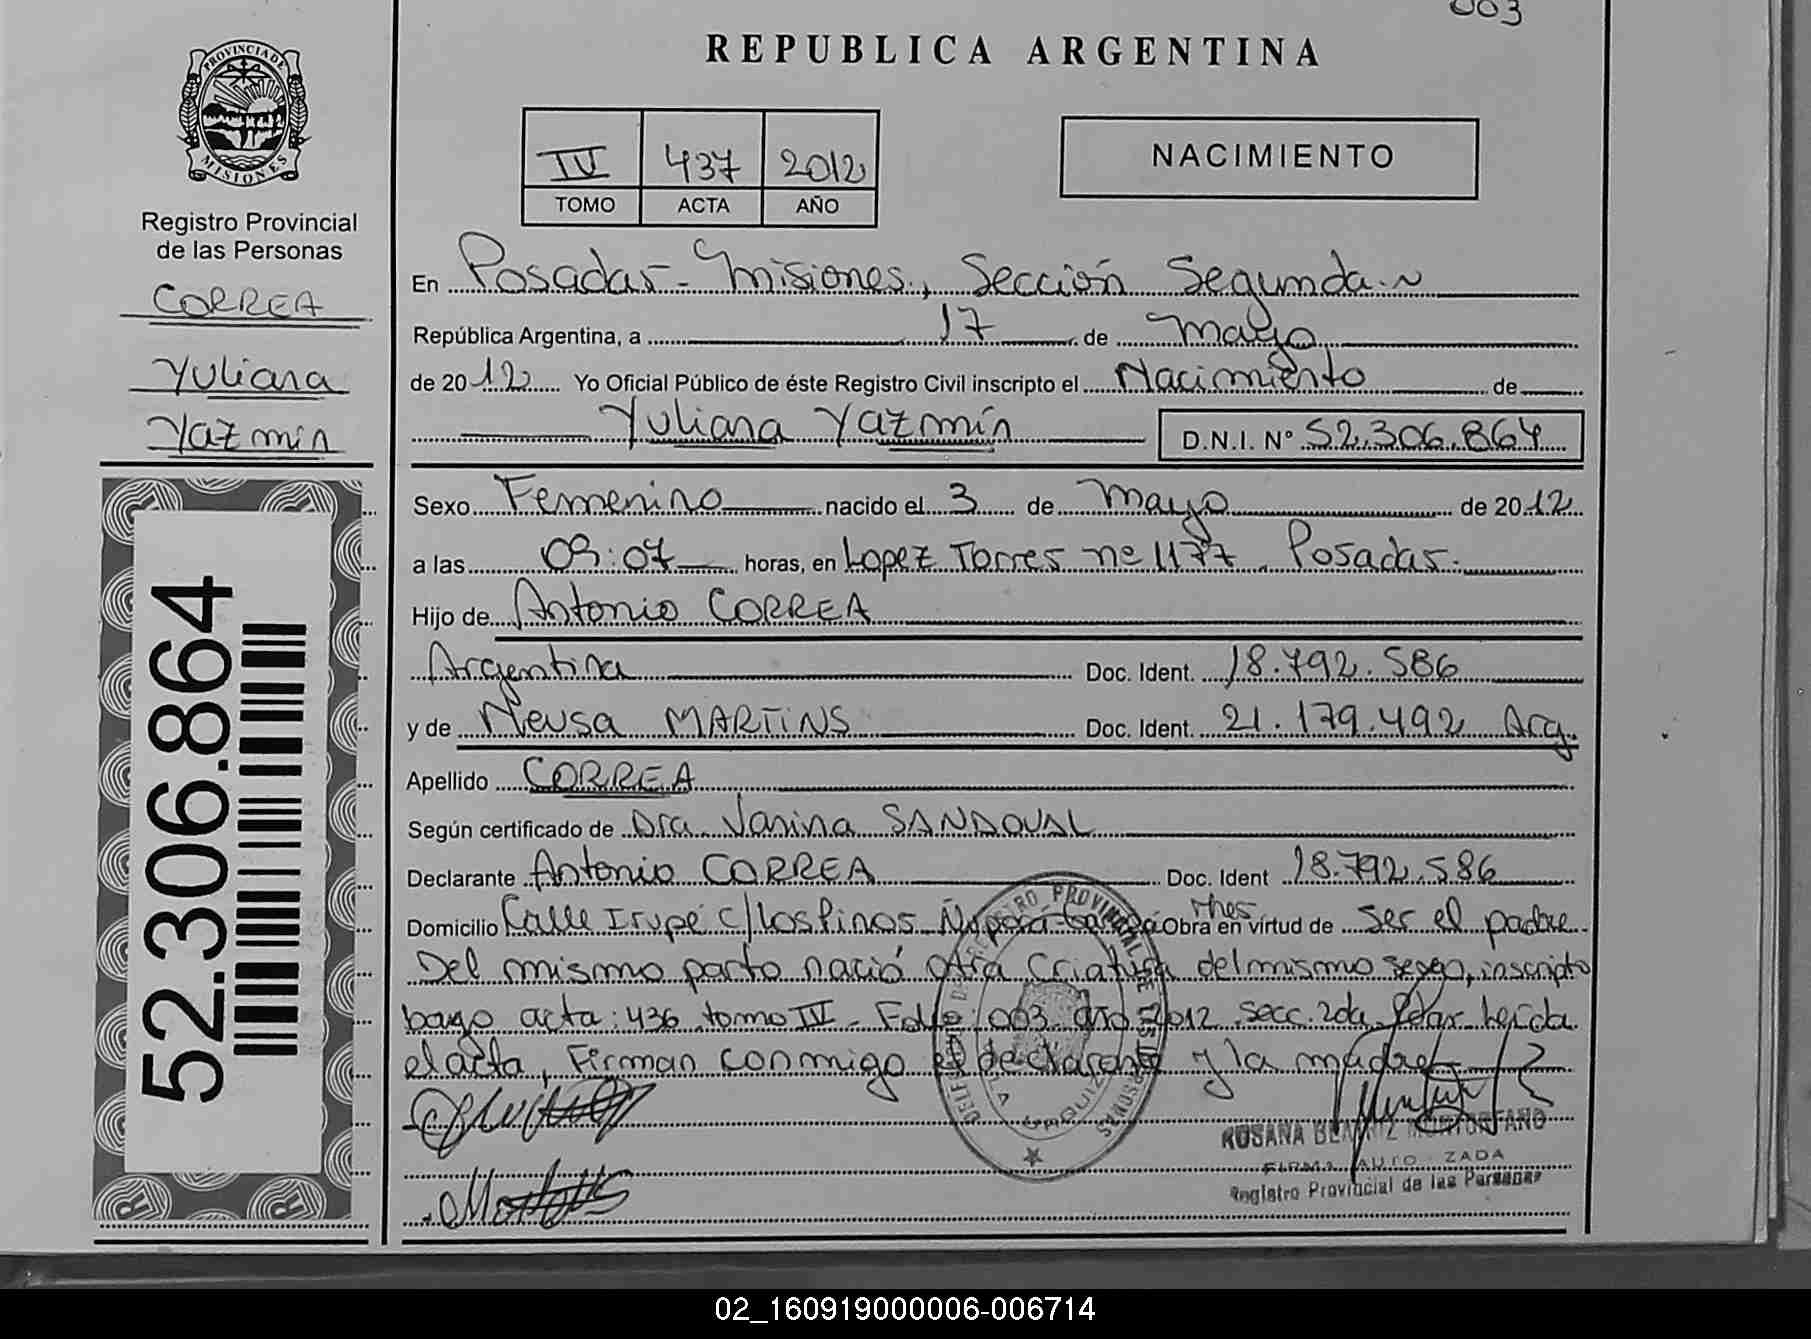 003
REPUBLICA ARGENTINA
PROVINCIA DE
MISIONES
Registro Provincial
de las Personas
CORREA
Yuliana
Yazmín
52.306.864
IV 437 2012
TOMO ACTA AÑO
NACIMIENTO
En Posadas - Misiones, Sección Segunda.
República Argentina, a 17 de Mayo
de 2012 Yo Oficial Público de éste Registro Civil inscripto el Nacimiento de
Yuliana Yazmín D.N.I. N° 52.306.864
Sexo Femenino nacido el 3 de Mayo de 2012
a las 09:07 horas, en Lopez Torres nº 1177. Posadas.
Hijo de Antonio CORREA
Argentina Doc. Ident. 18.792.586
y de Neusa MARTINS Doc. Ident. 21.179.492 Arg.
Apellido CORREA
Según certificado de Dra. Vanina SANDOVAL
Declarante Antonio CORREA Doc. Ident 18.792.586
Domicilio Calle Irupé c/ Los Pinos Obra en virtud de ser el padre.
Del mismo parto nació otra criatura del mismo sexo, inscripto
bajo acta: 436 tomo IV - Folio: 003 año 2012 secc. 2da. Leida
el acta, Firman conmigo el declarante y la madre
ROSANA BEATRIZ
FIRMA AUTORIZADA
Registro Provincial de las Personas
02_160919000006-006714